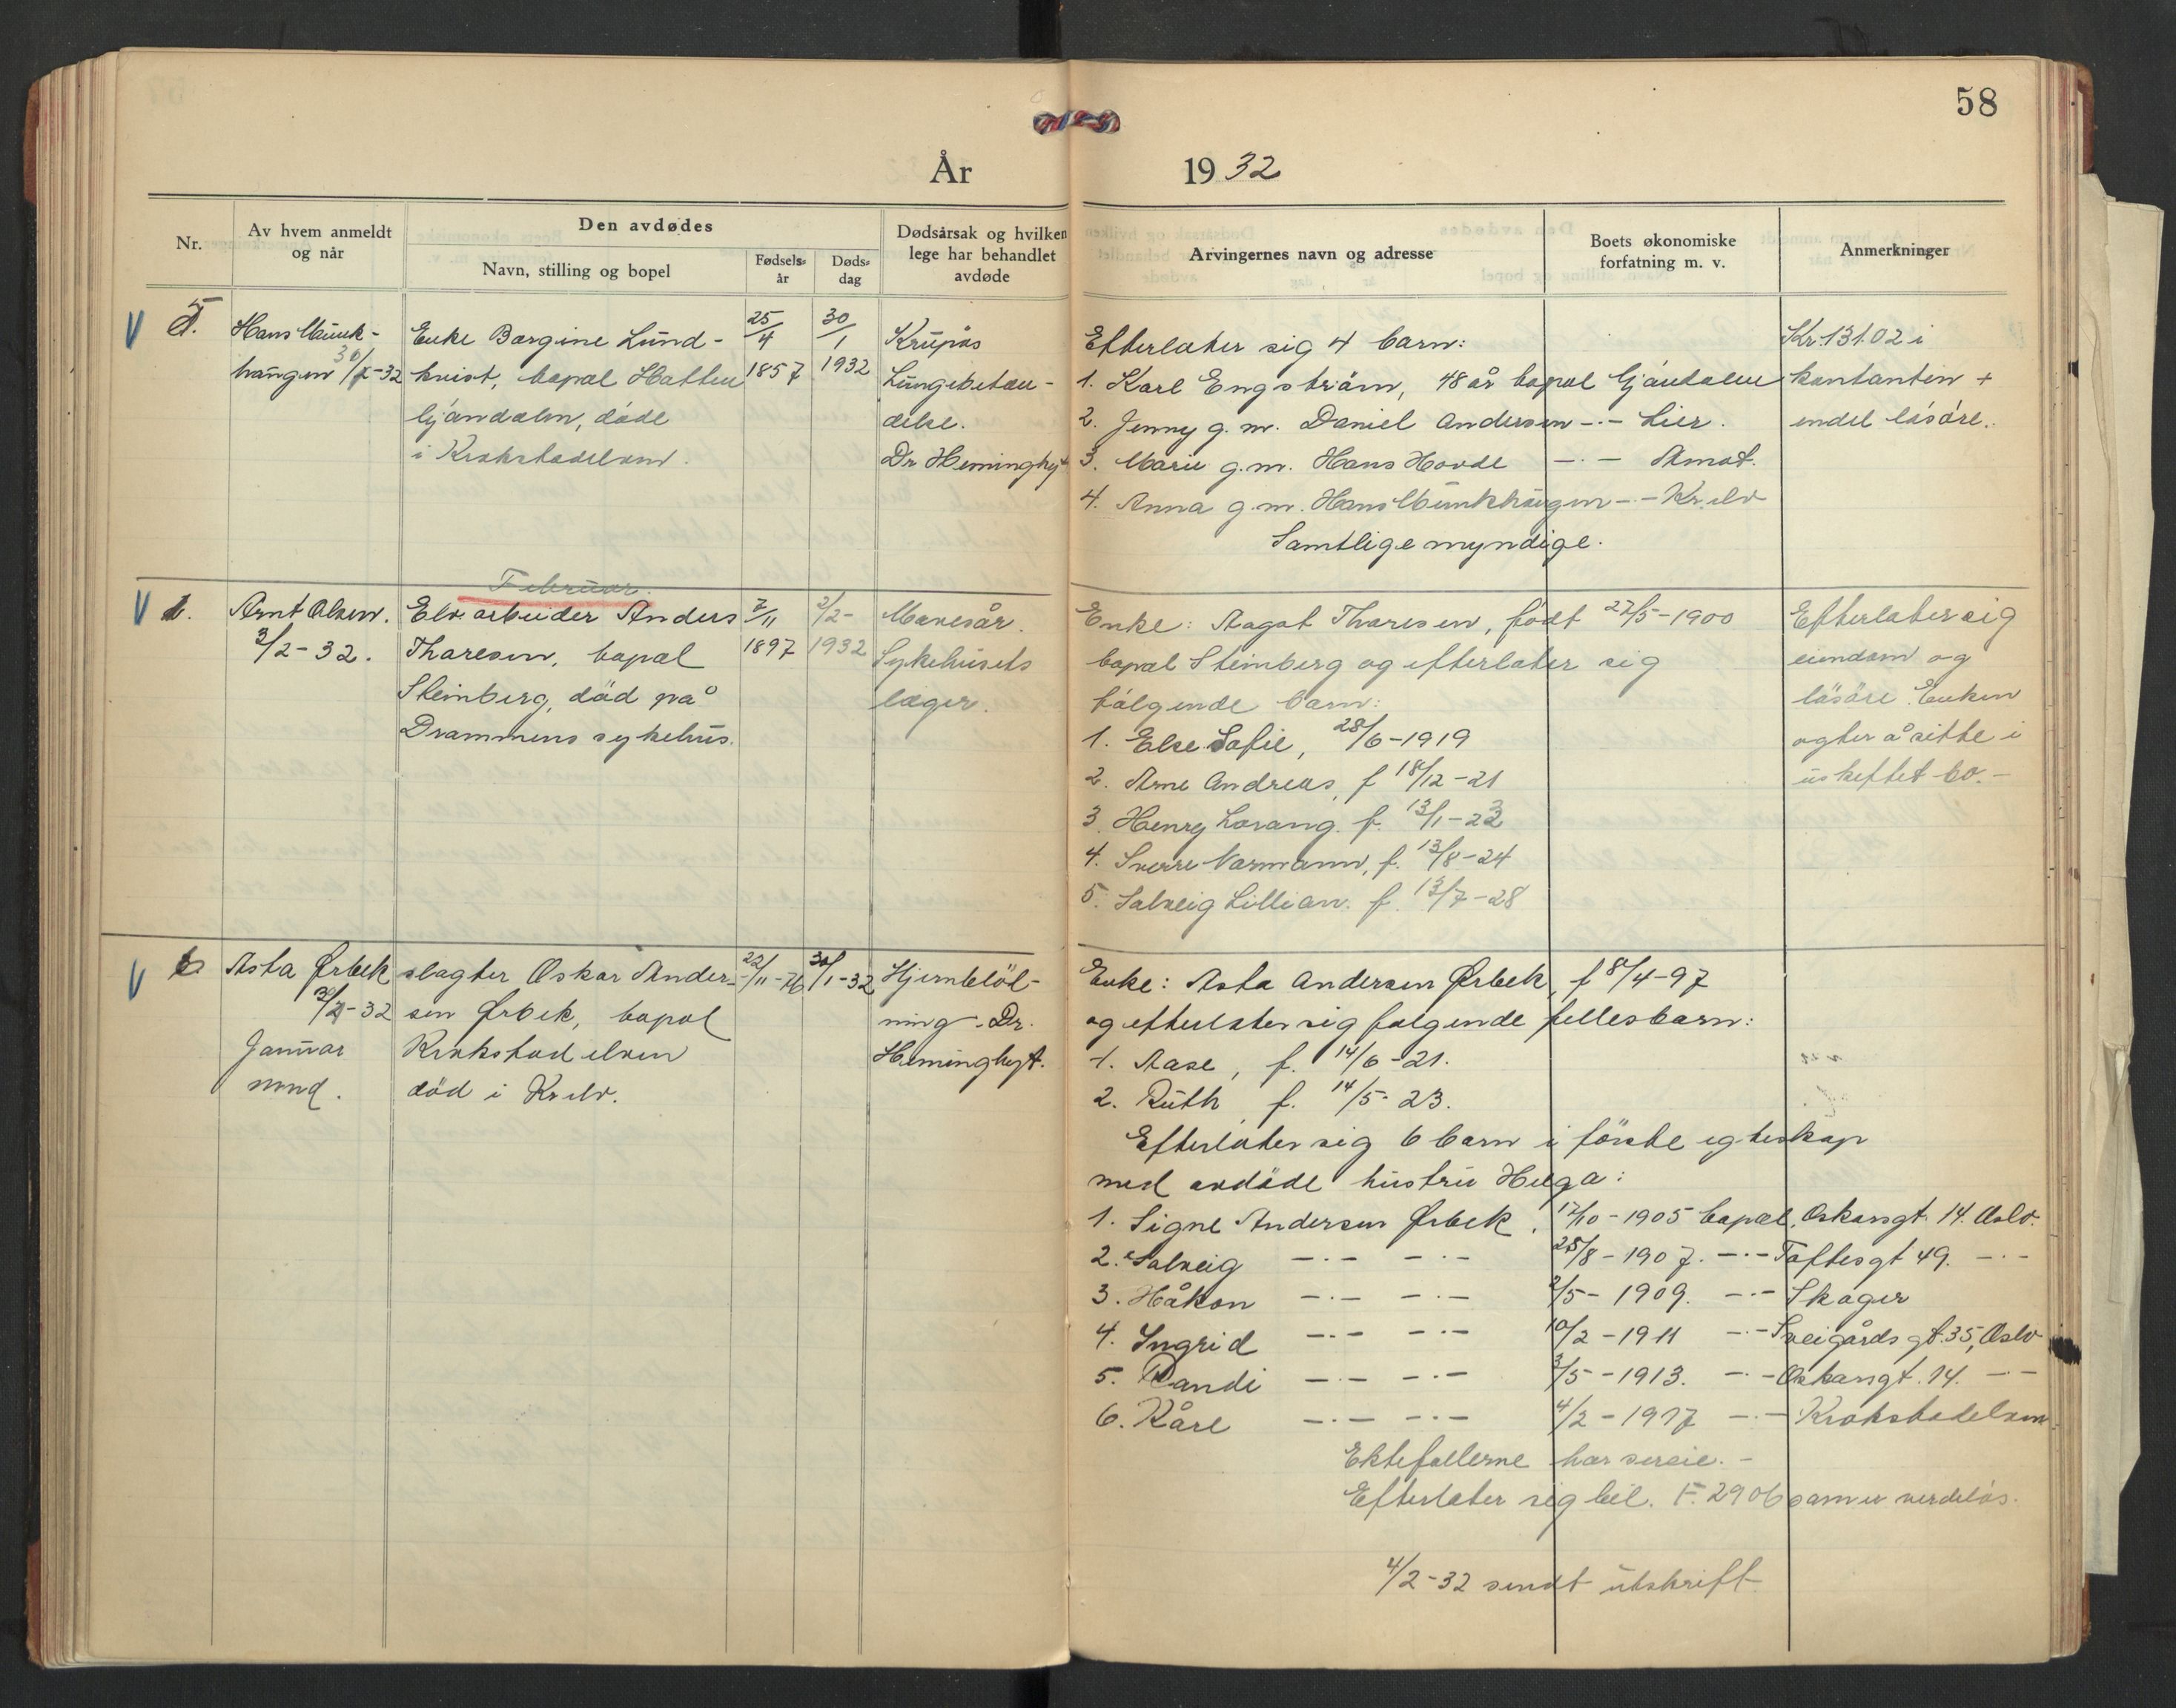 58
År 1932
Nr.
Av hvem anmeldt
og når
Den avdødes
Navn, stilling og bopel
Fødsels-
år
Døds-
dag
Dødsårsak og hvilken
lege har behandlet
avdøde
Arvingernes navn og adresse
Boets økonomiske
forfatning m. v.
Anmerkninger
V 5.
Hans Munk-
haugen 30/1-32
Enke Borgine Lund-
kvist, bopæl Hatten
Gjøndalen, døde
i Krokstadelven.
25/4
1857
30/1
1932
Krupøs
Lungebeten-
delse.
Dr Heminghyt
Efterlater sig 4 barn:
1. Karl Engstrøm, 48 år bopæl Gjøndalen
2. Jenny g.m. Daniel Andersen -.- Lier.
3. Marie g.m. Hans Hovde -.- Åmot.
4. Anna g.m. Hans Munkhaugen -.- Kr.elv
Samtlige myndige.
Kr. 131.02 i
kontanten +
endel løsøre.
Februar.
V
Arnt Olsen.
3/2-32.
Elvearbeider Anders
Thoresen, bopæl
Steinberg, død på
Drammens sykehus.
7/11
1897
2/2-
1932
Mavesår.
Sykehusets
læger.
Enke: Aagot Thoresen, født 27/5-1900
bopæl Steinberg og efterlater sig
følgende barn:
1. Else Sofie, 28/6-1919
2. Arne Andreas, f 18/12-21
3. Henry Lorang. f. 13/1-23
4. Sverre Normann, f. 13/8-24
5. Solveig Lillian. f. 13/7-28
Efterlater sig
eiendom og
løsøre. Enken
agter å sitte i
uskiftet bo.-
V 6
Asta Ørbek
/2-32
Januar
mnd.
slagter Oskar Ander-
sen Ørbek, bopæl
Krokstadelven
død i Kr.elv.
22/11-76
30/1-32
Hjernebløt-
ning. Dr.
Heminghyt.
Enke: Asta Andersen Ørbek, f 8/4-97
og efterlater sig følgende fellesbarn:
1. Aase, f. 14/6-21.
2. Ruth f. 14/5-23.
Efterlater sig 6 barn i første egteskap
med avdøde hustru Helga:
1. Signe Andersen Ørbek, 17/10-1905 bopæl, Oskarsgt. 14. Oslo.
2. Solveig -.- -.- 25/8-1907. -.- Toftesgt 49. -.-
3. Håkon -.- -.- 2/5-1909. -.- Skoger
4. Ingrid -.- -.- 10/2-1911 -.- Sveigårdsgt. 35, Oslo
5. Randi -.- -.- 3/5-1913. -.- Oskarsgt. 14. -.-
6. Kåre -.- -.- 4/2-1917 -.- Krokstadelven.
Ektefellerne har særeie.-
Efterlater sig bil. F. 2906 som er verdiløs.
4/2-32 sendt utskrift